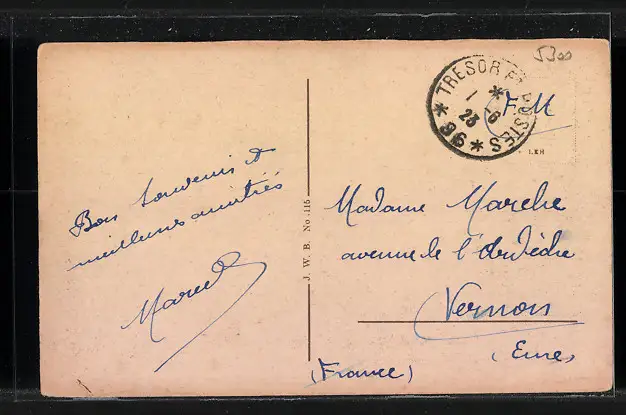 5300
TRESOR ET POSTES
* 96 *
1 -6
23
FM
Bon Souvenir et
meilleures amitiés
Marcel
J. W. B. No 115
Madame Marche
avenue de l'Ardèche
Vernon
(Eure)
(France)